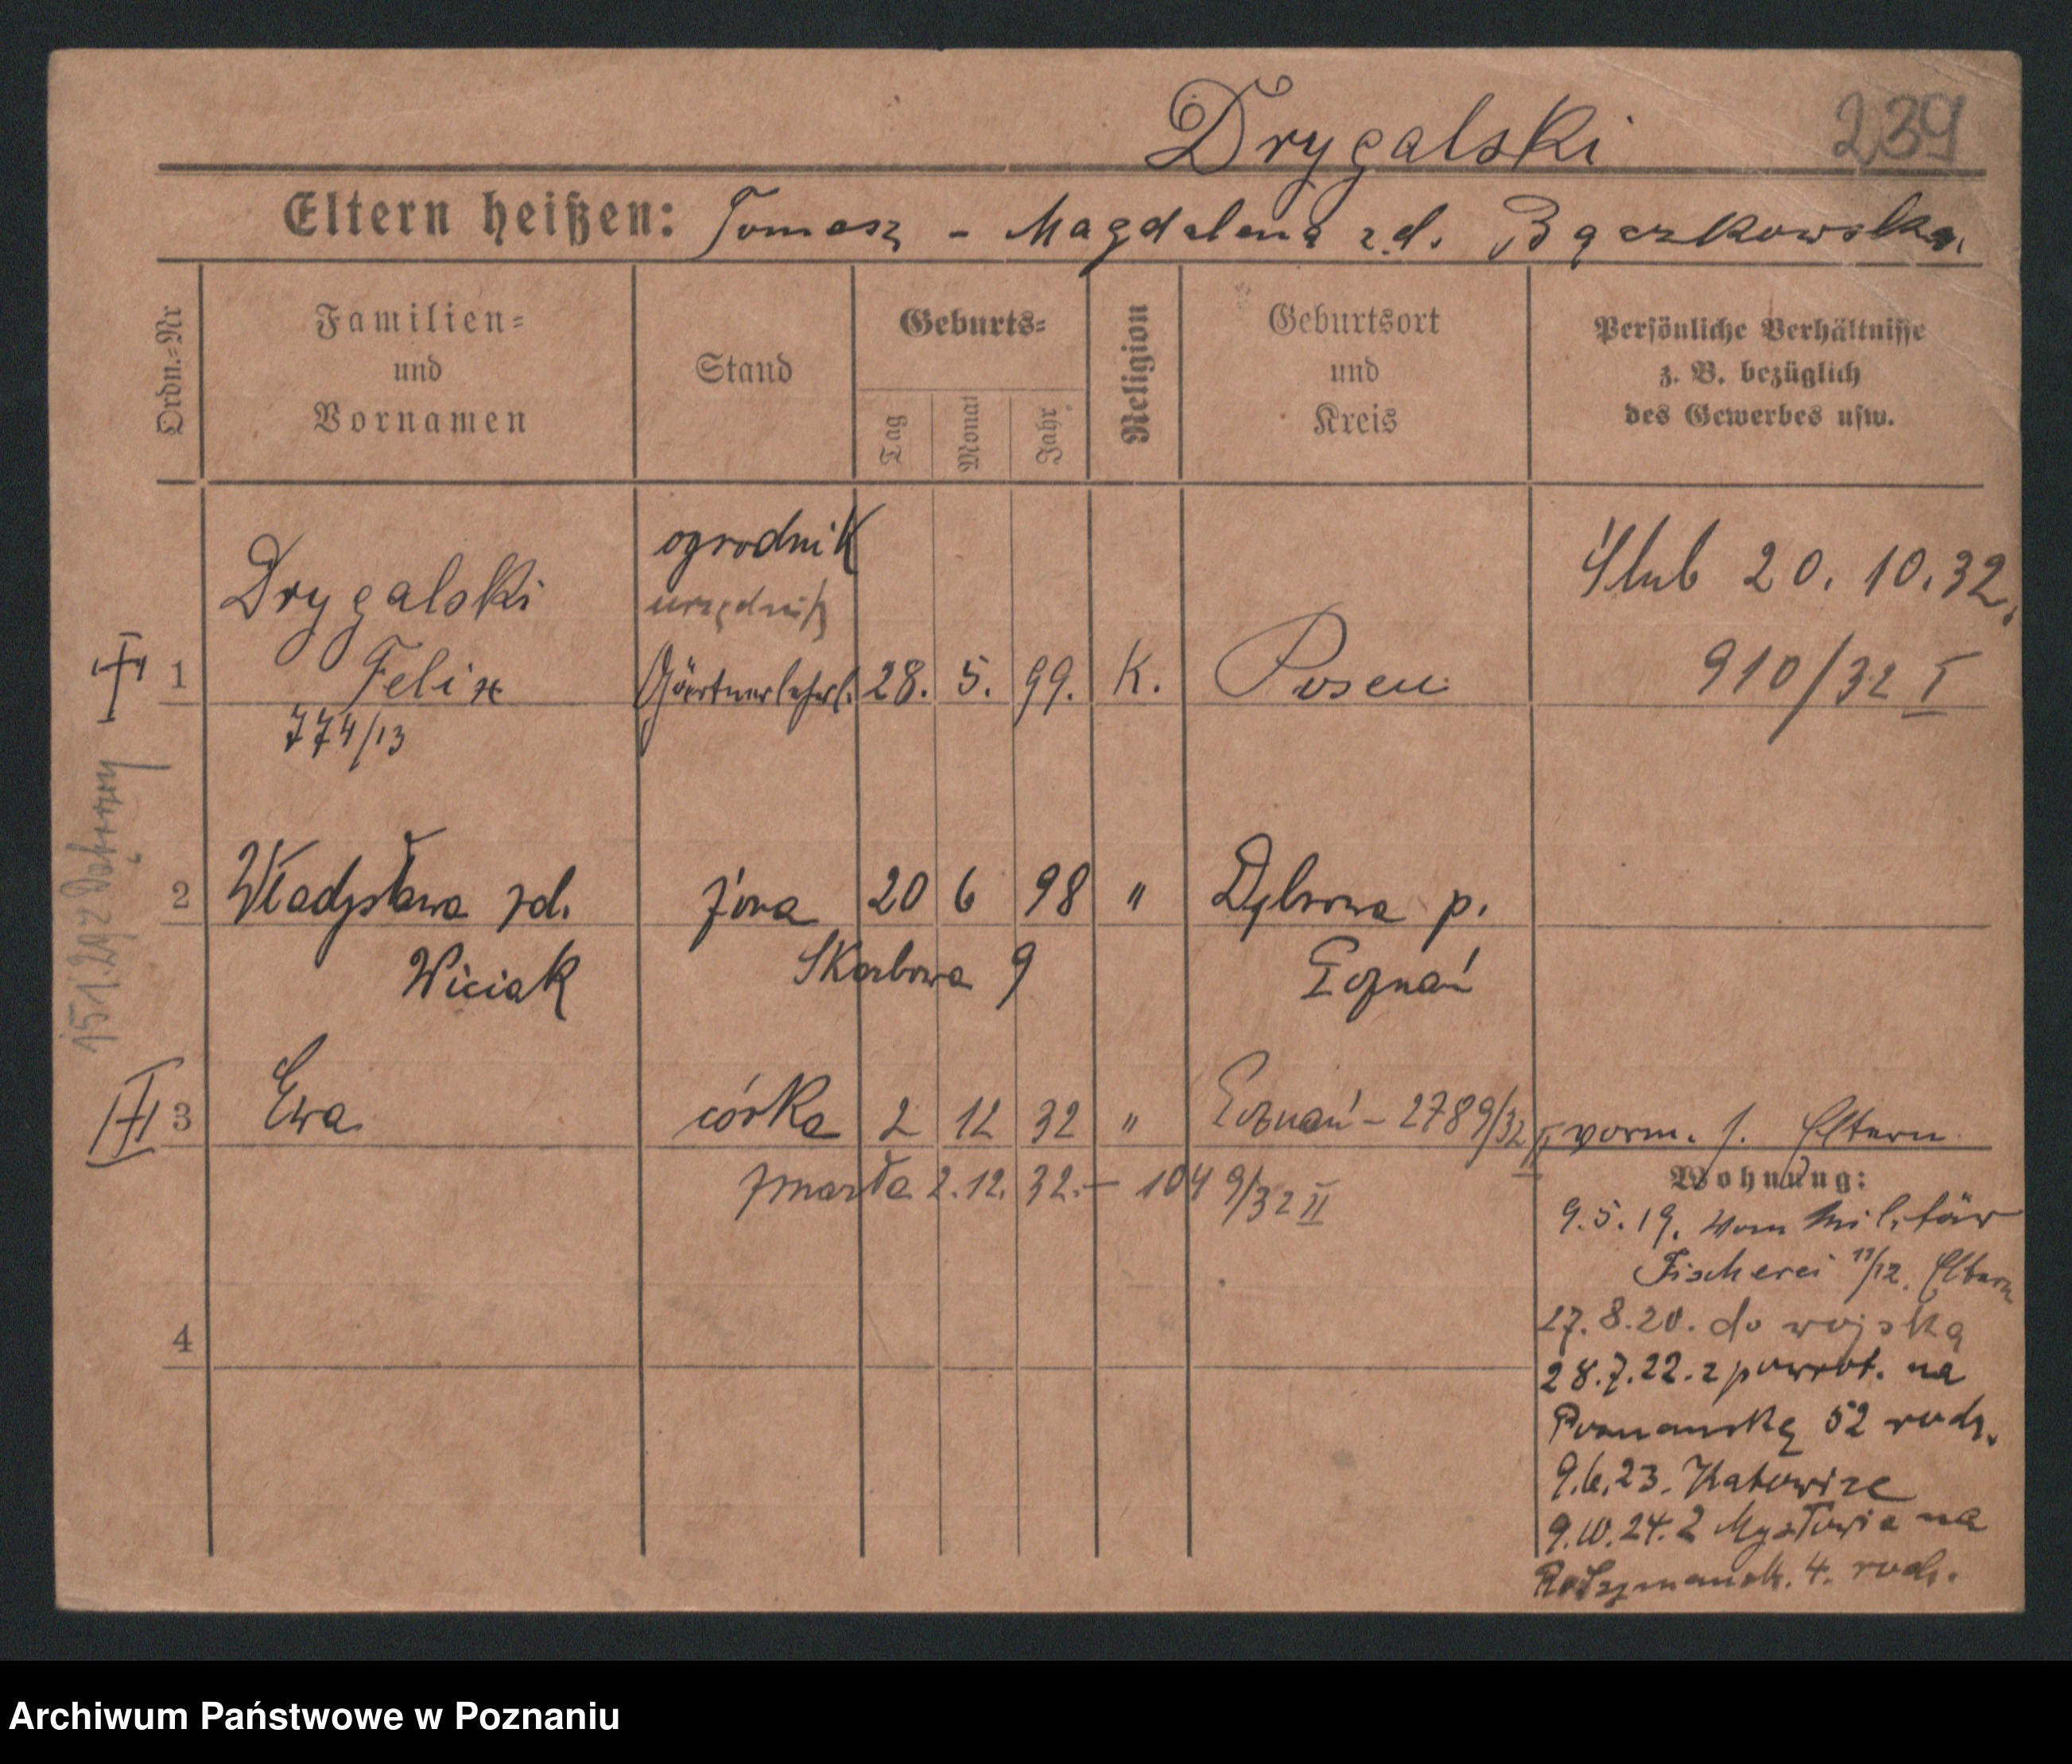 Drygalski 239
Eltern heißen: Tomasz - Magdalena z d. Bączkowska.
Ordn.=Nr
Familien=
und
Vornamen
Stand
Geburts=
Tag
Monat
Jahr
Religion
Geburtsort
und
Kreis
Persönliche Verhältnisse
z. B. bezüglich
des Gewerbes usw.
ogrodnik
urzędnik
1 Drygalski
Felix
774/13
Gärtnerlehrl. 28. 5. 99. K. Posen
Ślub 20.10.32.
910/32 I
2 Władysława zd. żona 20 6 98 " Dąbrowa p.
Wiciak Skarbowa 9 Poznań
3 Ewa córka 2 12 32 " Poznań - 2789/32 II
zmarła 2.12.32. - 1049/32 II
4
vorm. s. Eltern
Wohnung:
9.5.19. vom Militär
Fischerei 11/12. Eltern
27.8.20. do wojska
28.7.22. z powrot. na
Poznańską 52 rodz.
9.6.23. Katowice
9.10.24. z Mysłowic na
Ratzymansk. 4. rodz.
Archiwum Państwowe w Poznaniu